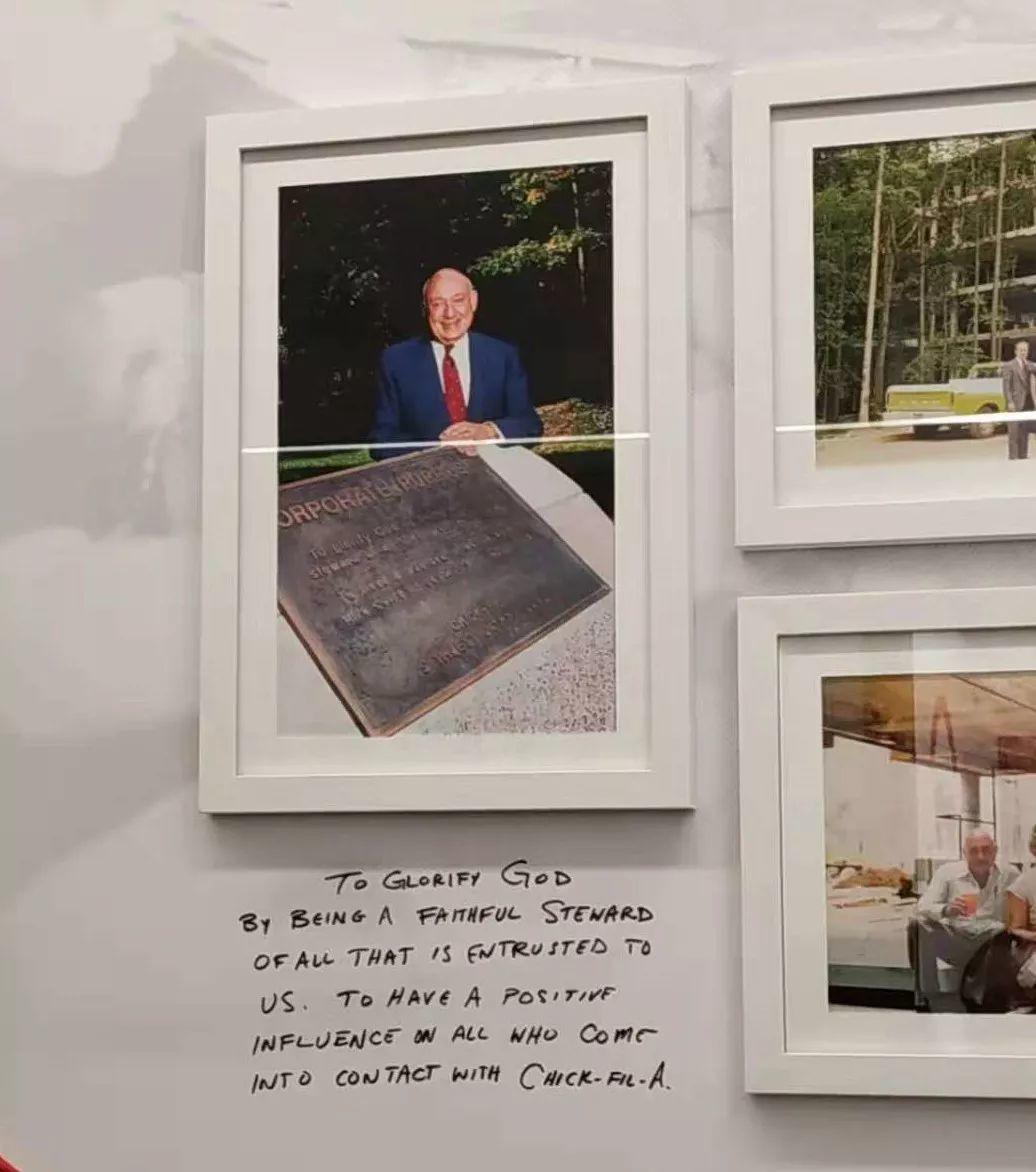 ORPORATE PURPOSE
To Glorify God
TO GLORIFY GOD
BY BEING A FAITHFUL STEWARD
OF ALL THAT IS ENTRUSTED TO
US. TO HAVE A POSITIVE
INFLUENCE ON ALL WHO COME
INTO CONTACT WITH CHICK-FIL-A.